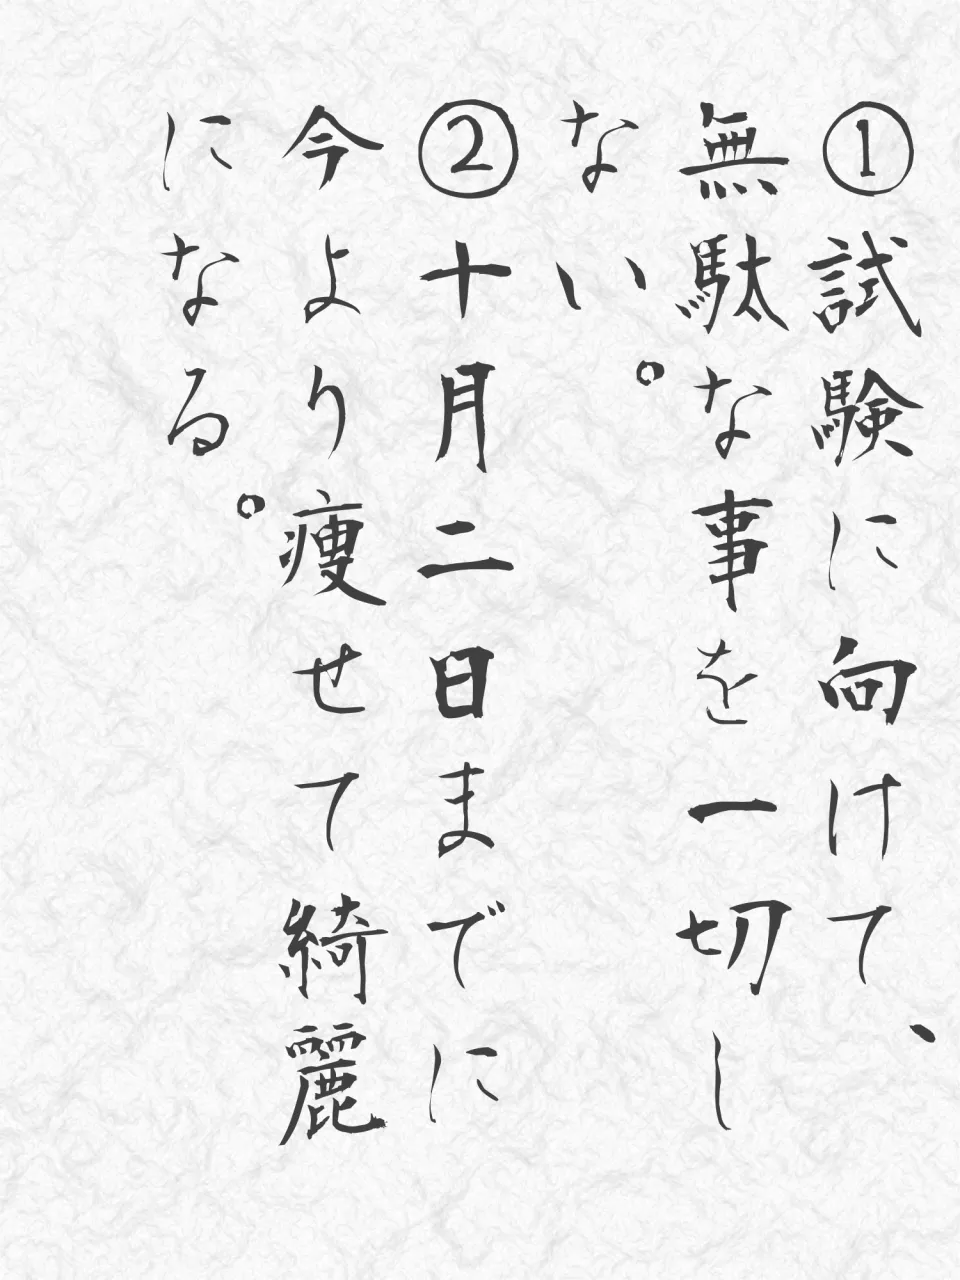 ①試験に向けて、
無駄な事を一切し
ない。
②十月二日までに
今より痩せて綺麗
になる。